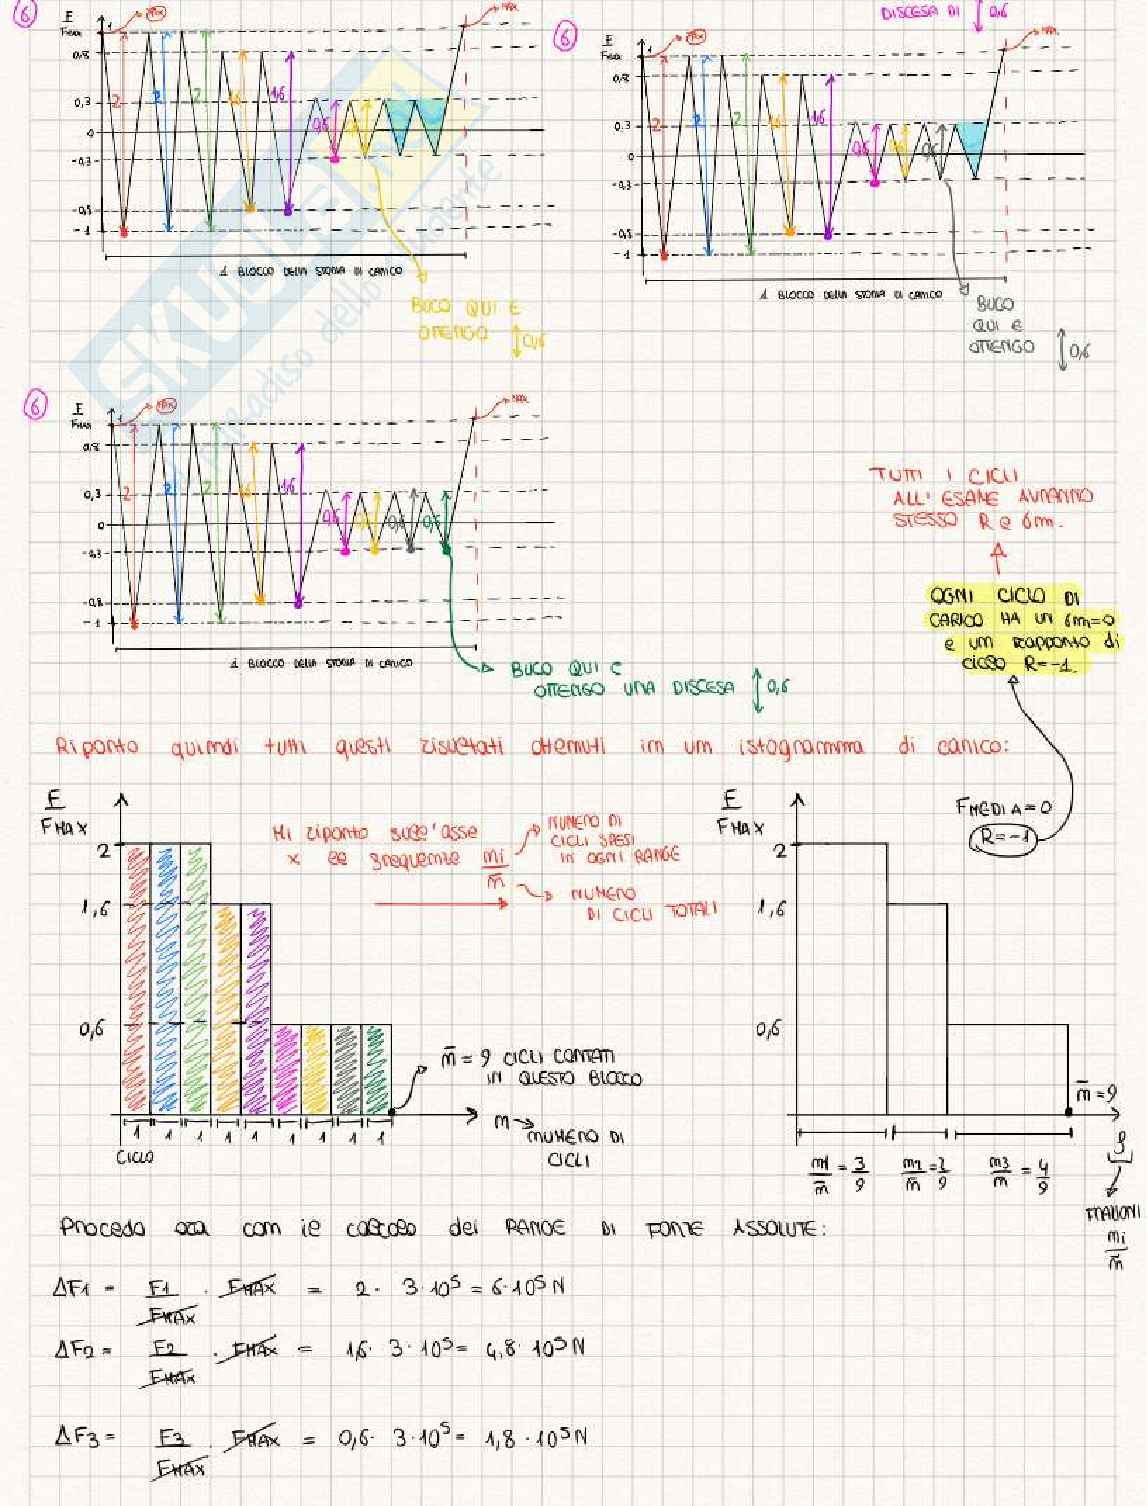 6
F
FMAX
1
MAX
MAX
0,8
0,3
0
-0,3
-0,8
-1
2
2
2
1,6
1,6
0,6
1 BLOCCO DELLA STORIA DI CARICO
BUCO QUI E
OTTENGO
0,6
DISCESA DI 0,6
6
F
FMAX
1
MAX
MAX
0,8
0,3
0
-0,3
-0,8
-1
2
2
2
1,6
1,6
0,6
0,6
1 BLOCCO DELLA STORIA DI CARICO
BUCO
QUI E
OTTENGO
0,6
SKUOLA
paradiso dello studente
6
F
FMAX
1
MAX
MAX
0,8
0,3
0
-0,3
-0,8
-1
2
2
2
1,6
1,6
0,6
0,6
0,6
0,6
1 BLOCCO DELLA STORIA DI CARICO
BUCO QUI E
OTTENGO UNA DISCESA 0,6
TUTTI I CICLI
ALL' ESAME AVRANNO
STESSO R e σm.
OGNI CICLO DI
CARICO HA UN σm=0
e un rapporto di
ciclo R=-1.
Riporto quindi tutti questi risultati ottenuti in un istogramma di carico:
F
FMAX
2
1,6
0,6
Mi riporto sull'asse
x le frequenze ni
n̄
NUMERO DI
CICLI SPESI
IN OGNI RANGE
NUMERO
DI CICLI TOTALI
n̄ = 9 CICLI CONTATI
IN QUESTO BLOCCO
n →
NUMERO DI
CICLI
1 1 1 1 1 1 1 1 1
CICLO
F
FMAX
2
1,6
0,6
FMEDIA = 0
R=-1
n̄ = 9
n1/n̄ = 3/9
n2/n̄ = 2/9
n3/n̄ = 4/9
FRAZIONI
ni
n̄
Procedo ora con il calcolo dei RANGE DI FORZE ASSOLUTE:
ΔF1 = F1/FMAX · FMAX = 2 · 3·10⁵ = 6·10⁵ N
ΔF2 = F2/FMAX · FMAX = 1,6 · 3·10⁵ = 4,8·10⁵ N
ΔF3 = F3/FMAX · FMAX = 0,6 · 3·10⁵ = 1,8·10⁵ N